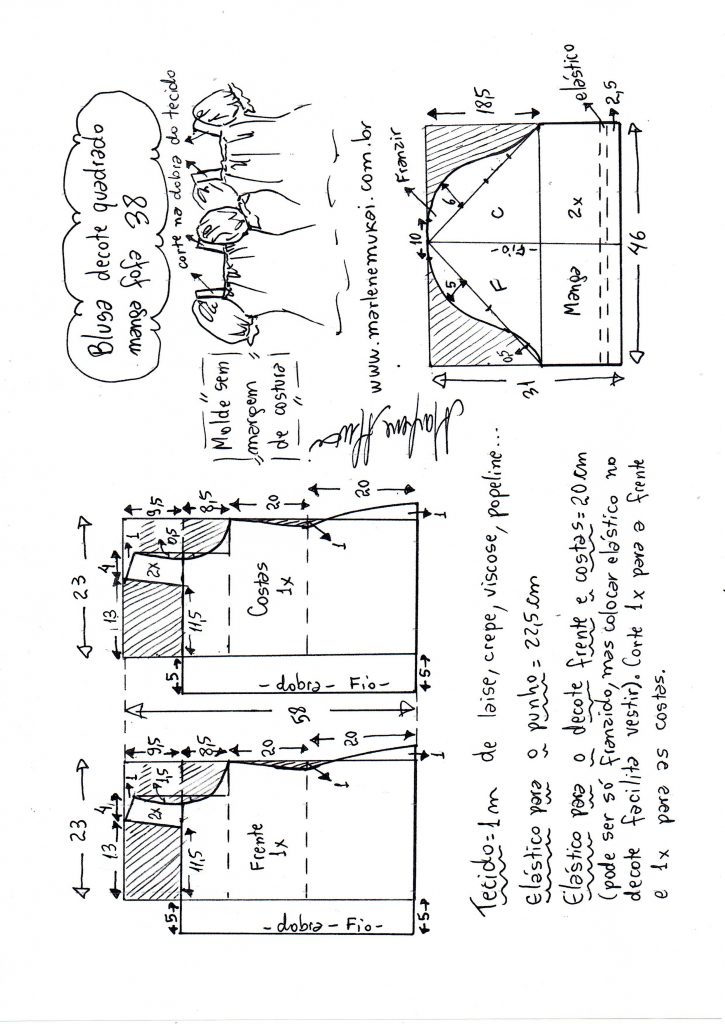 Blusa decote quadrado
manga fofa 38
corte na dobra do tecido
Molde sem
margem
de costura
www.marlenemukai.com.br
Marlene Mukai
23
13
4
1
2x
1,5
9,5
8,5
20
20
1
1
11,5
5
5
Frente
1x
- dobra - Fio -
58
23
13
4
1
2x
0,5
9,5
8,5
20
20
1
1
11,5
5
5
Costas
1x
- dobra - Fio -
Franzir
10
18,5
31
5
6
0,5
F
C
- Fio -
Manga
2x
elástico
2,5
46
Tecido = 1m de laise, crepe, viscose, popeline...
Elástico para o punho = 22,5 cm
Elástico para o decote frente e costas = 20 cm
(pode ser só franzido, mas colocar elástico no
decote facilita vestir). Corte 1x para a frente
e 1x para as costas.